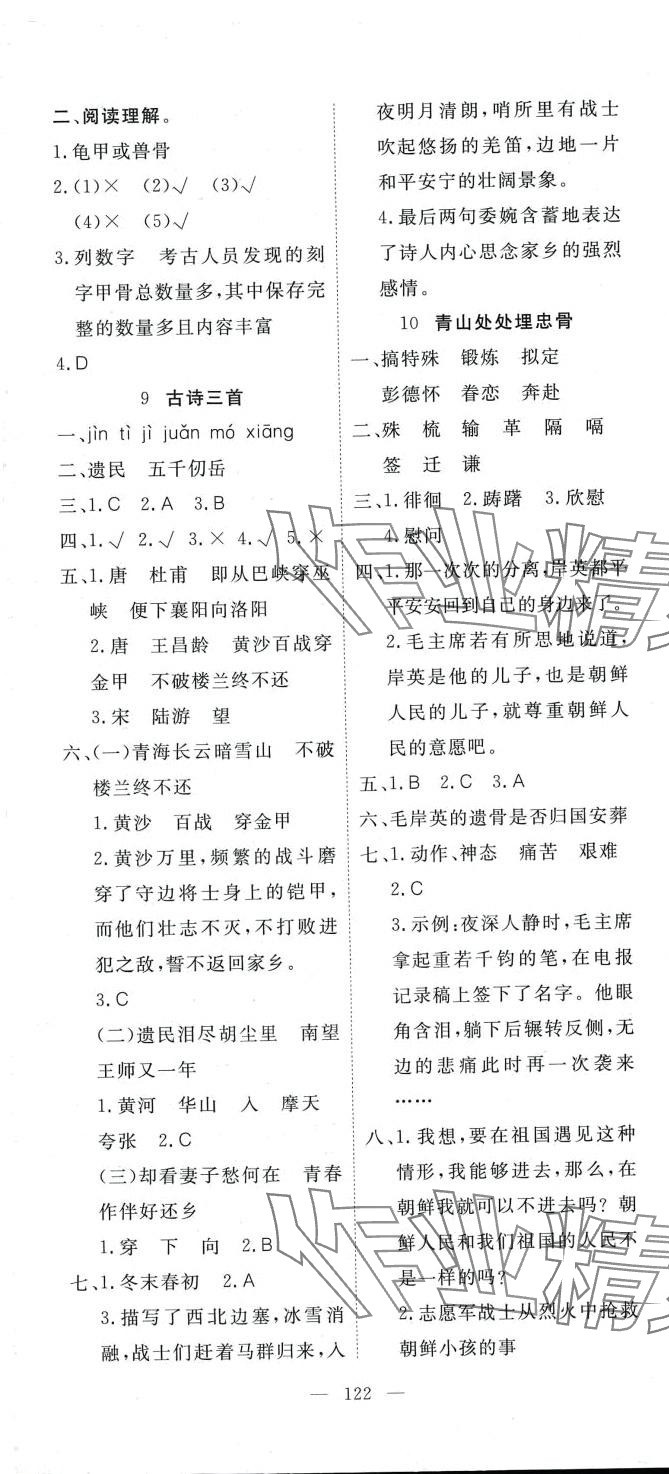 二、阅读理解。
1.龟甲或兽骨
2.(1)× (2)√ (3)√
(4)× (5)√
3.列数字 考古人员发现的刻
字甲骨总数量多,其中保存完
整的数量多且内容丰富
4.D
9 古诗三首
一、jìn tì jì juǎn mó xiāng
二、遗民 五千仞岳
三、1.C 2.A 3.B
四、1.√ 2.√ 3.× 4.√ 5.×
五、1.唐 杜甫 即从巴峡穿巫
峡 便下襄阳向洛阳
2.唐 王昌龄 黄沙百战穿
金甲 不破楼兰终不还
3.宋 陆游 望
六、(一)青海长云暗雪山 不破
楼兰终不还
1.黄沙 百战 穿金甲
2.黄沙万里,频繁的战斗磨
穿了守边将士身上的铠甲,
而他们壮志不灭,不打败进
犯之敌,誓不返回家乡。
3.C
(二)遗民泪尽胡尘里 南望
王师又一年
1.黄河 华山 入 摩天
夸张 2.C
(三)却看妻子愁何在 青春
作伴好还乡
1.穿 下 向 2.B
七、1.冬末春初 2.A
3.描写了西北边塞,冰雪消
融,战士们赶着马群归来,入
夜明月清朗,哨所里有战士
吹起悠扬的羌笛,边地一片
和平安宁的壮阔景象。
4.最后两句委婉含蓄地表达
了诗人内心思念家乡的强烈
感情。
10 青山处处埋忠骨
一、搞特殊 锻炼 拟定
彭德怀 眷恋 奔赴
二、殊 梳 输 革 隔 嗝
签 迁 谦
三、1.徘徊 2.踌躇 3.欣慰
4.慰问
四、1.那一次次的分离,岸英都平
平安安回到自己的身边来了。
2.毛主席若有所思地说道,
岸英是他的儿子,也是朝鲜
人民的儿子,就尊重朝鲜人
民的意愿吧。
五、1.B 2.C 3.A
六、毛岸英的遗骨是否归国安葬
七、1.动作、神态 痛苦 艰难
2.C
3.示例:夜深人静时,毛主席
拿起重若千钧的笔,在电报
记录稿上签下了名字。他眼
角含泪,躺下后辗转反侧,无
边的悲痛此时再一次袭来
……
八、1.我想,要在祖国遇见这种
情形,能够进去,那么,在
朝鲜我就可以不进去吗?朝
鲜人民和我们祖国的人民不
是一样的吗?
2.志愿军战士从烈火中抢救
朝鲜小孩的事
— 122 —
作业精
作业精